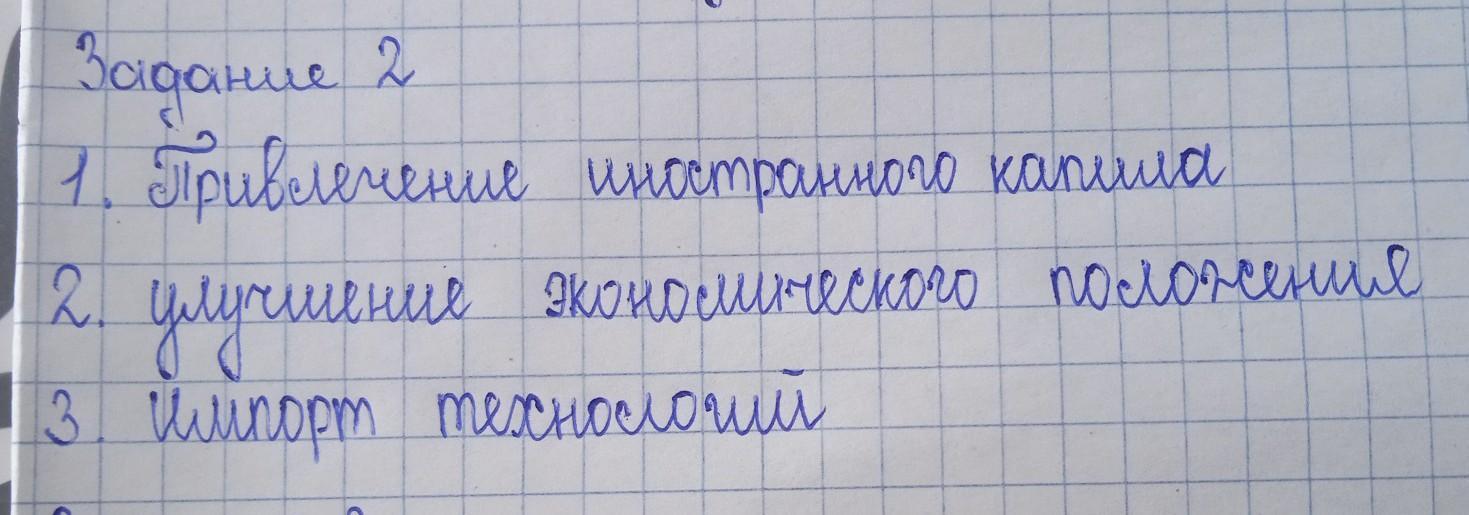 Задание 2
1. Привлечение иностранного капила
2. улучшение экономического положения
3. Импорт технологий